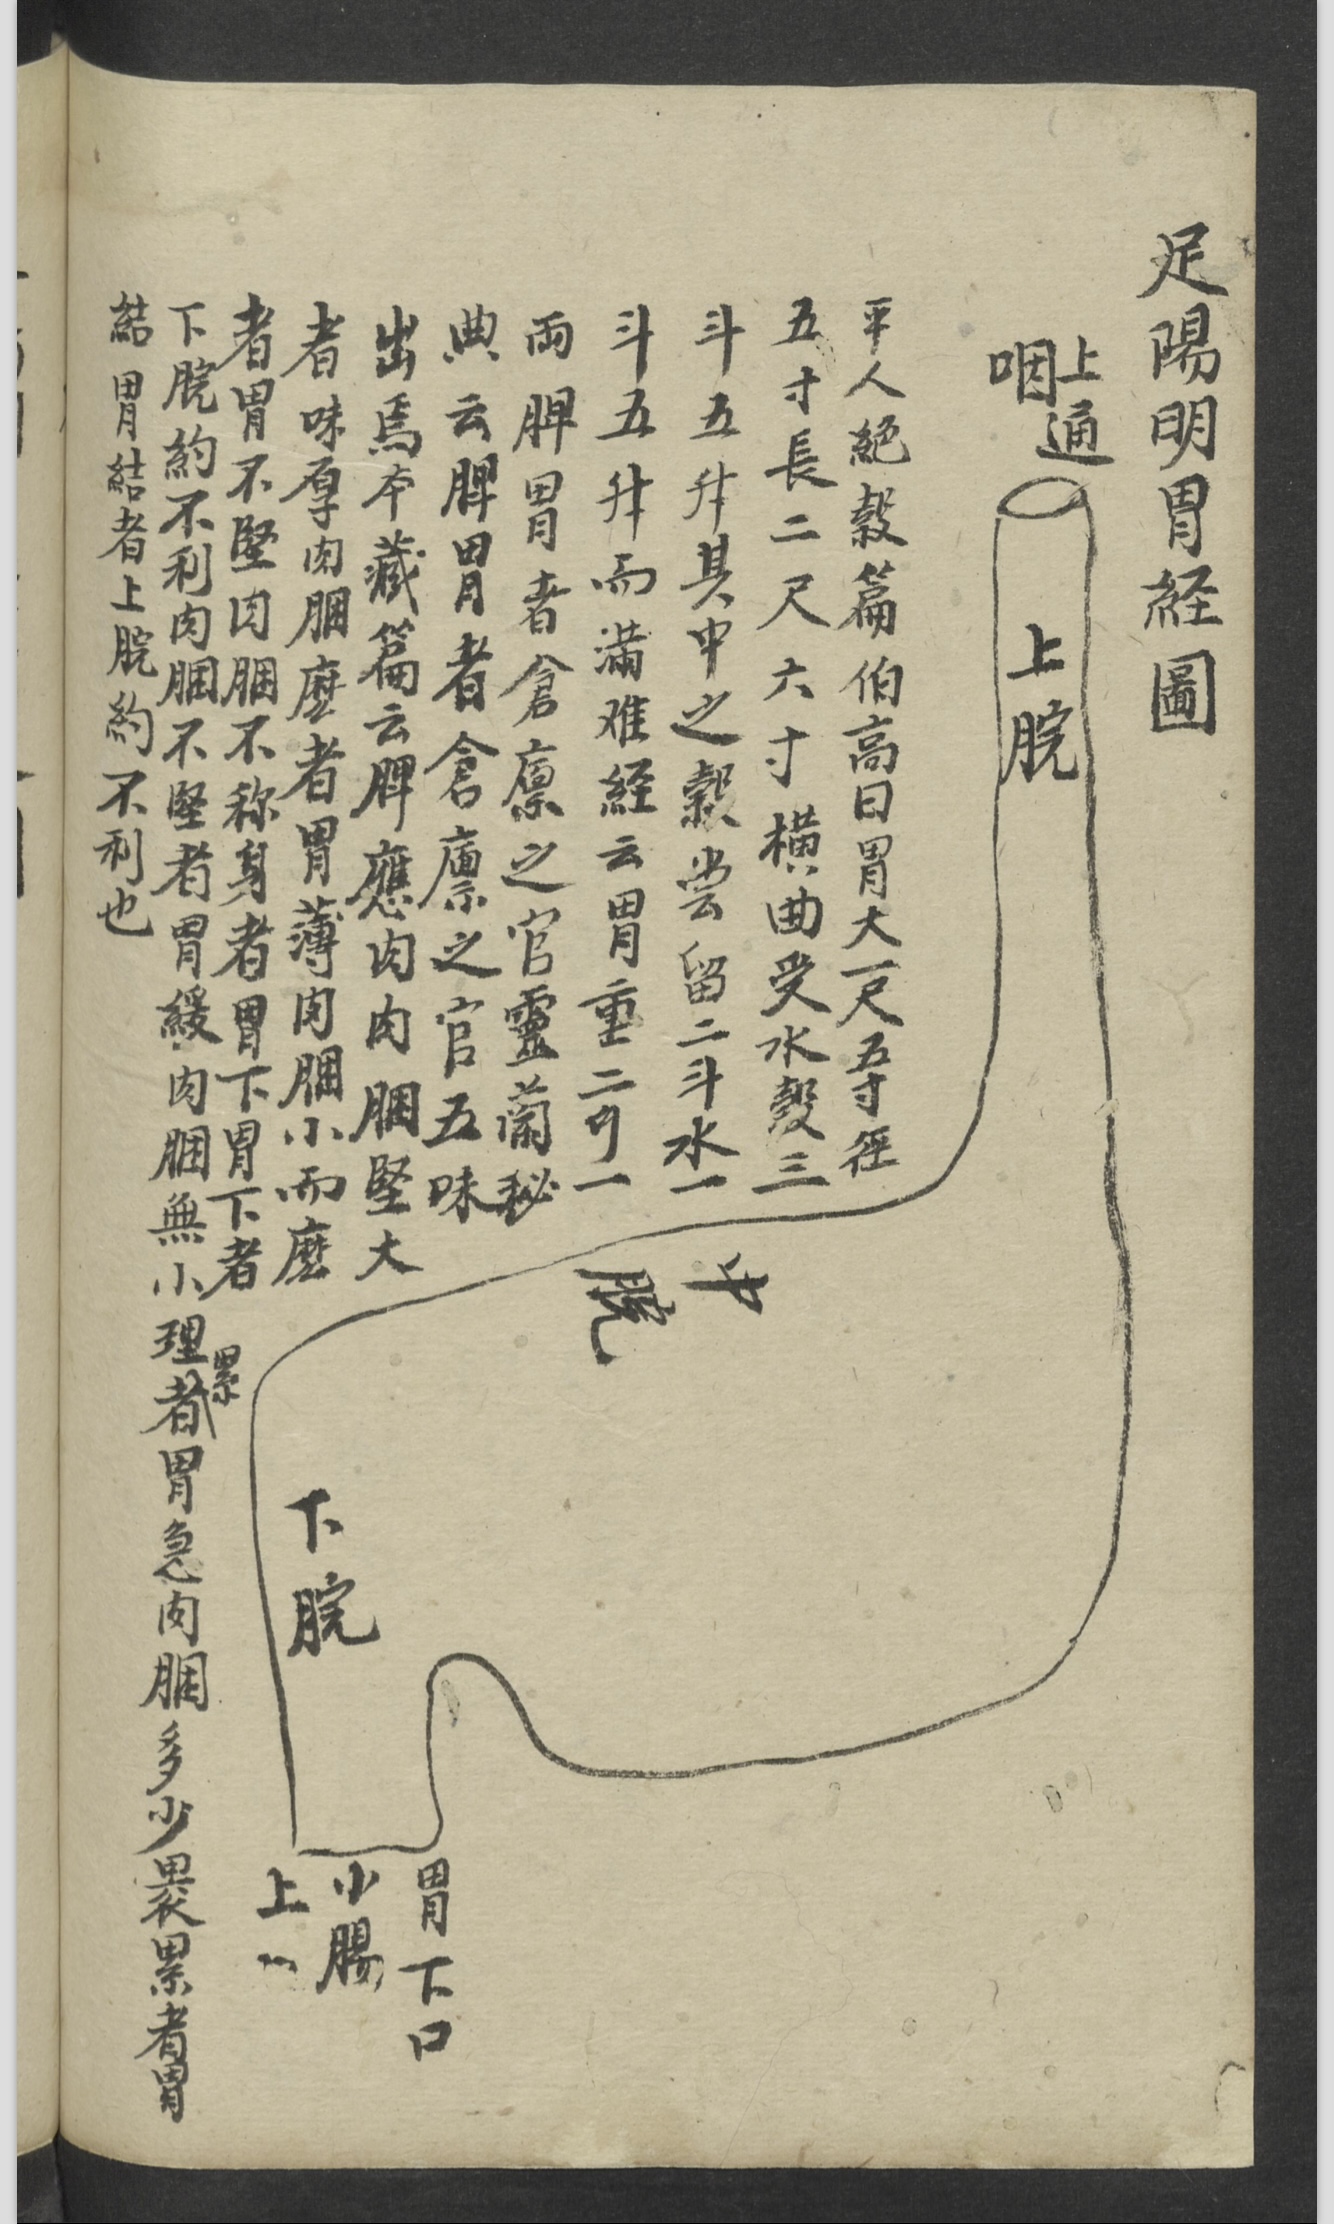 足陽明胃経圖
上通
咽
上脘
平人絕穀篇伯高曰胃大一尺五寸徑
五寸長二尺六寸橫曲受水穀三
斗五升其中之穀尝留二斗水一
斗五升而滿难経云胃重二斤一
兩脾胃者倉廪之官靈蘭秘
典云脾胃者倉廪之官五味
出焉本藏篇云脾應肉肉䐃堅大
者味厚肉䐃麽者胃薄肉䐃小而麽
者胃不堅肉䐃不称身者胃下胃下者
下脘約不利肉䐃不堅者胃緩肉䐃無小理累者胃急肉䐃多少裏累者胃
結胃結者上脘約不利也
中脘
下脘
胃下口
小腸
上